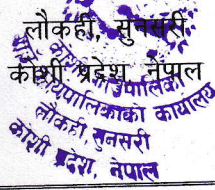 लौकही, सुनसरी
कोशी प्रदेश, नेपाल
कार्यपालिकाको कार्यालय
लौकही सुनसरी
कोशी प्रदेश, नेपाल